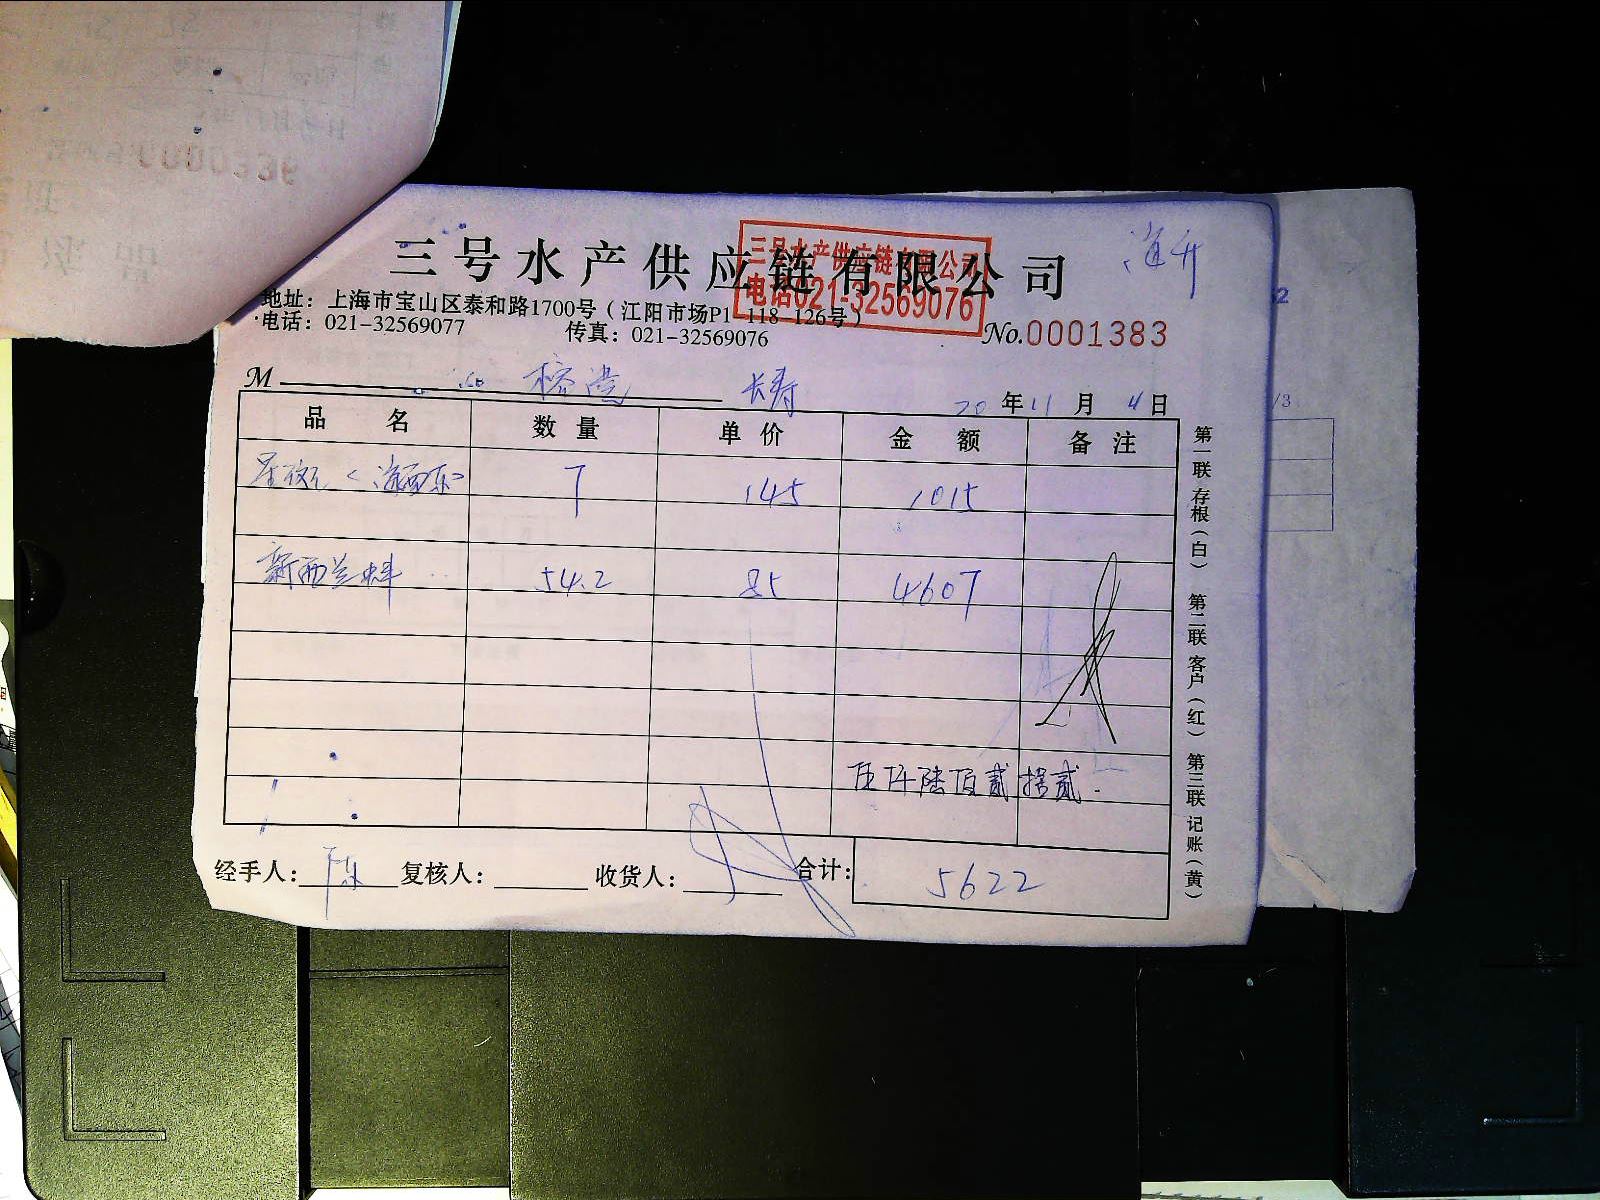 三号水产供应链有限公司
三号水产供应链有限公司
电话021-32569076
地址：上海市宝山区泰和路1700号（江阳市场P1-118-126号）
电话：021-32569077 传真：021-32569076
No.0001383
M 长寿 20年11月4日
品名 数量 单价 金额 备注
7 145 1015
新西兰 54.2 85 4607
伍仟陆佰贰拾贰.
经手人：陈 复核人： 收货人： 合计：5622
第一联 存根（白） 第二联 客户（红） 第三联 记账（黄）